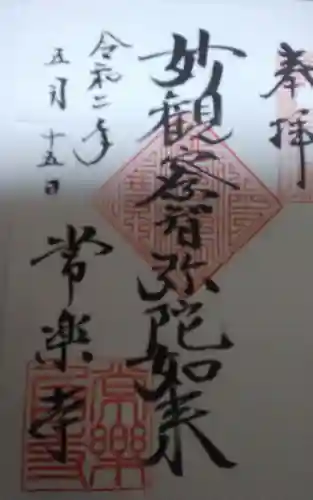 奉拝
妙觀察智弥陀如来
令和二年
五月十五日
常楽寺